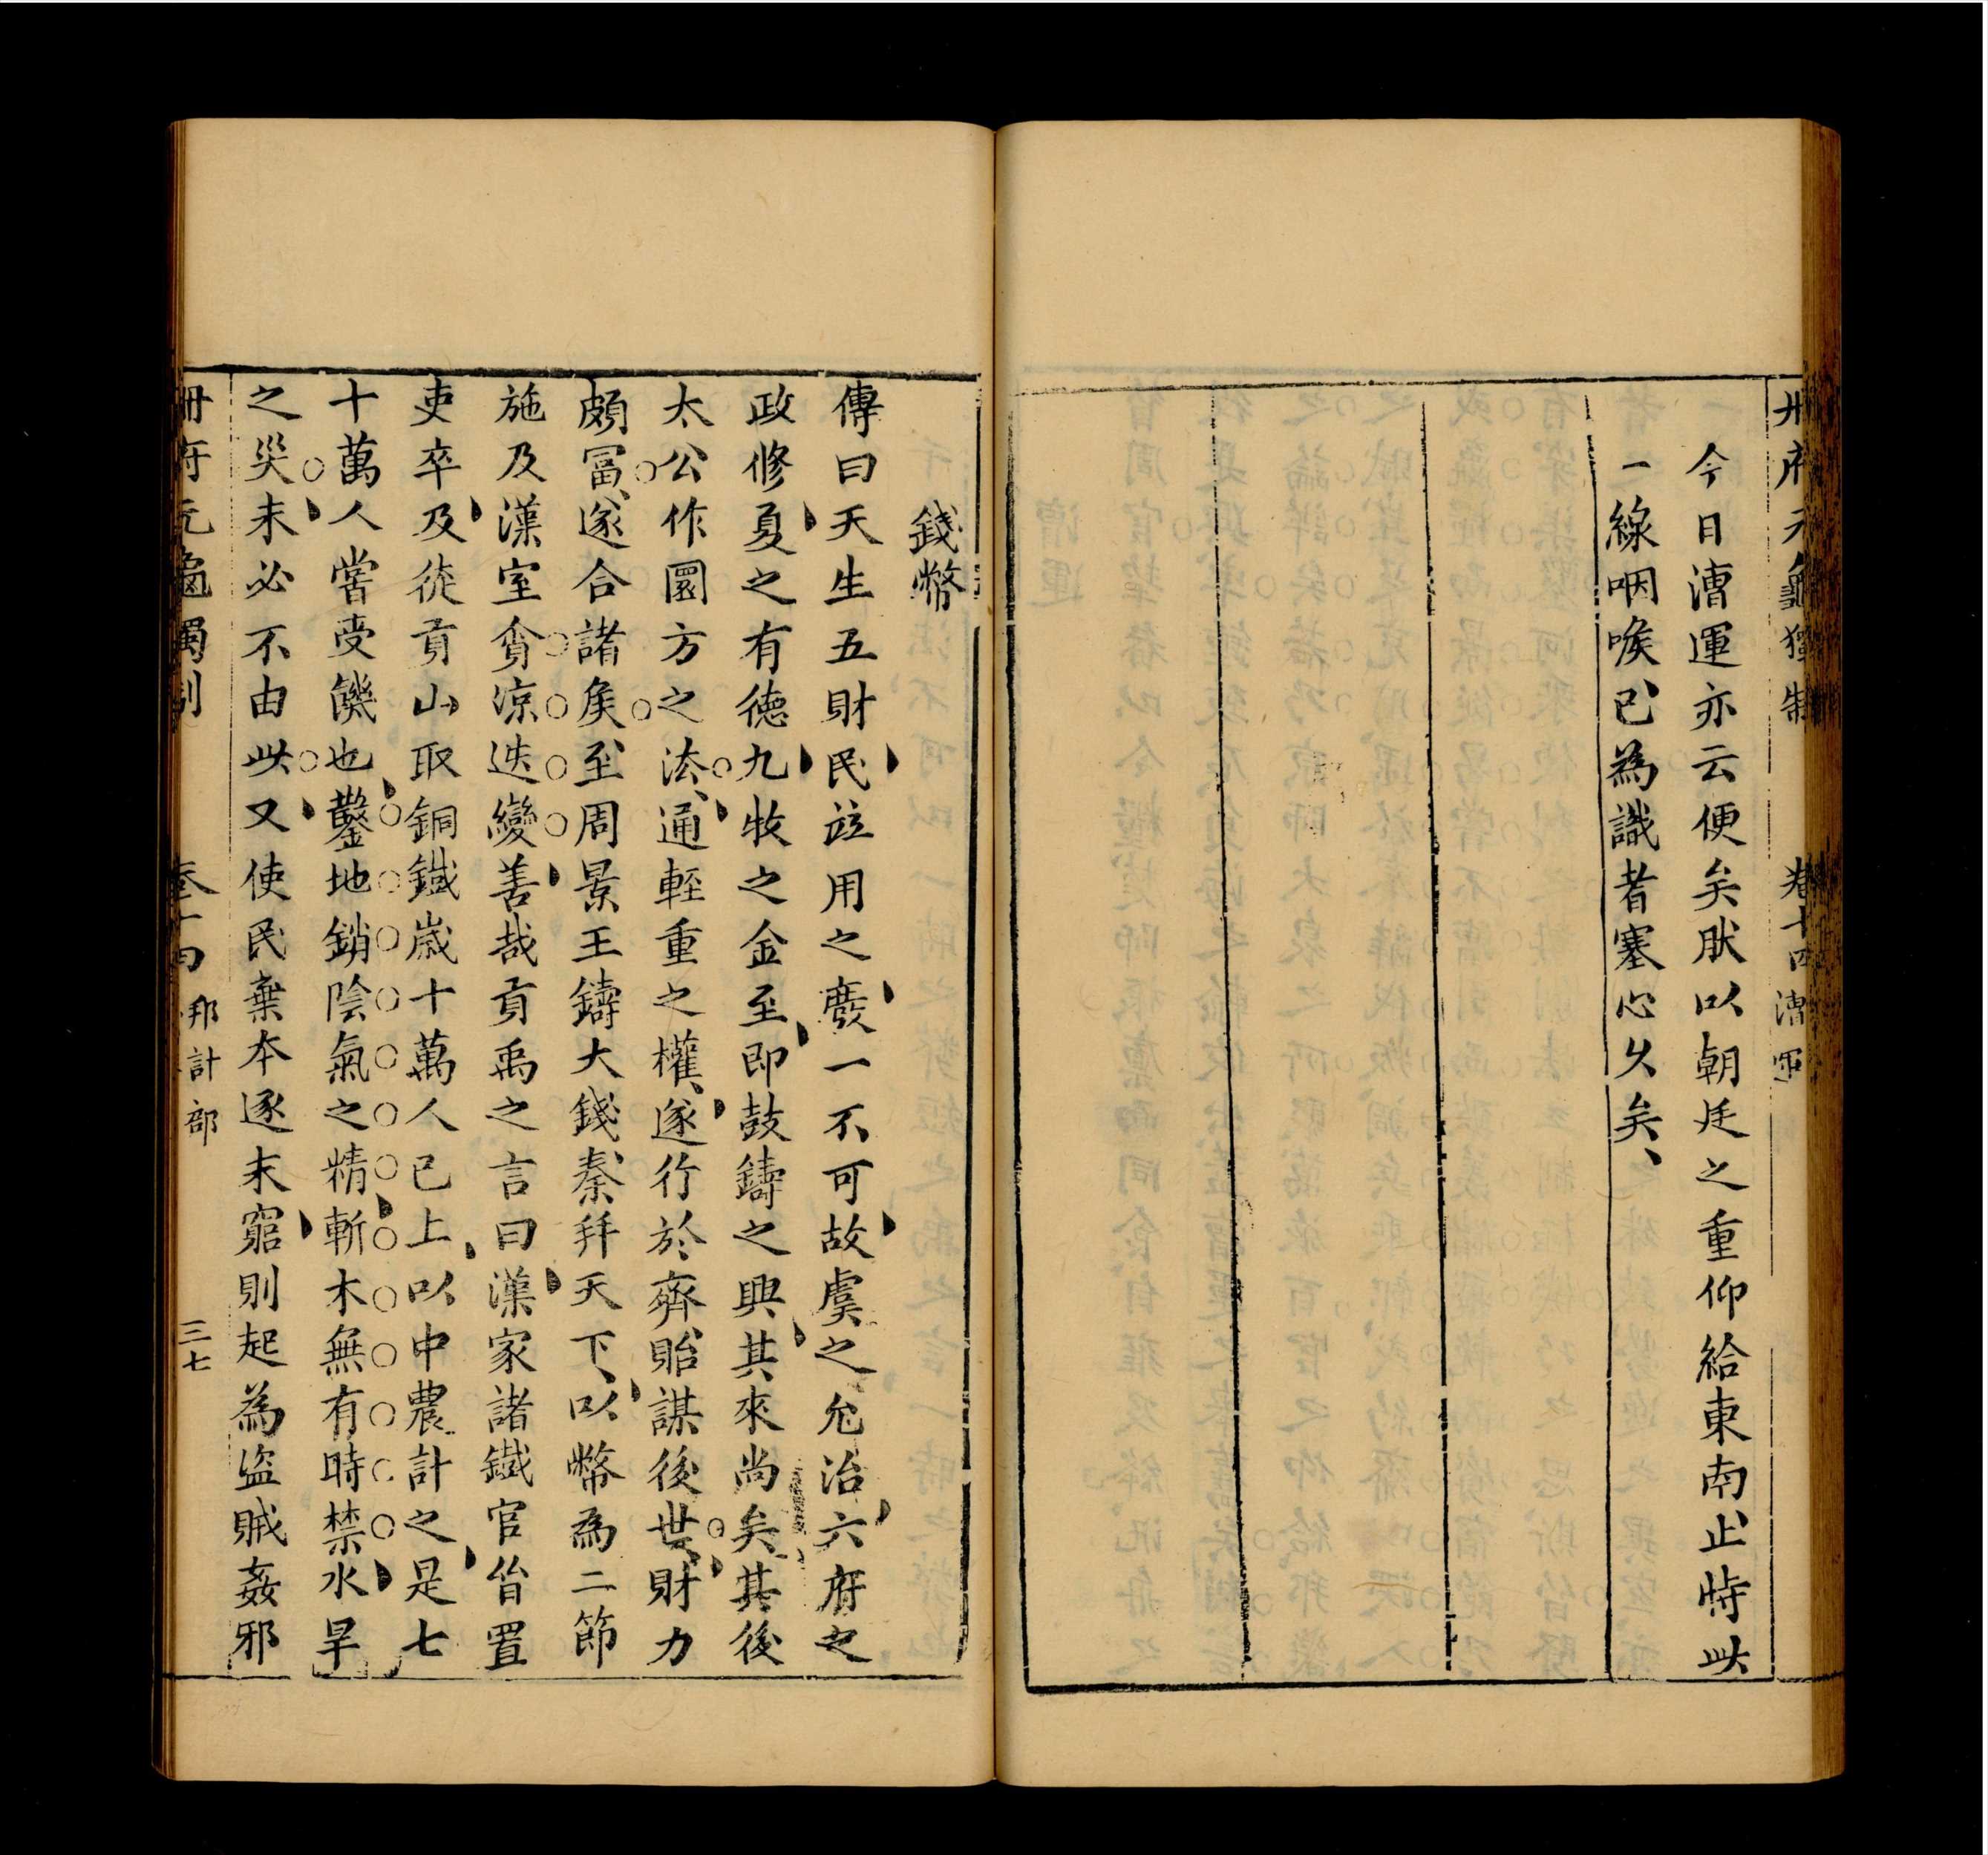 冊府元龜獨制 卷十四 漕運
今日漕運亦云便矣肰以朝廷之重仰給東南止恃此
一線咽喉已為識者塞心久矣、
錢幣
傳曰天生五財民竝用之廢一不可故虞之允治六府之
政修夏之有德九牧之金至即鼓鑄之興其來尚矣其後
太公作圜方之法、通輕重之權、遂行於齊貽謀後世、財力
頗冨、遂合諸矦至周景王鑄大錢秦幷天下、以幣為二節
施及漢室奢涼迭變善哉貢禹之言曰漢家諸鐵官皆置
吏卒及徒貢山取銅鐵嵗十萬人已上以中農計之是七
十萬人嘗受饑也鑿地銷陰氣之精斬木無有時禁水旱
之災未必不由此又使民棄本逐末窮則起為盜賊姦邪
冊府元龜獨制 卷十四 邦計部 三七